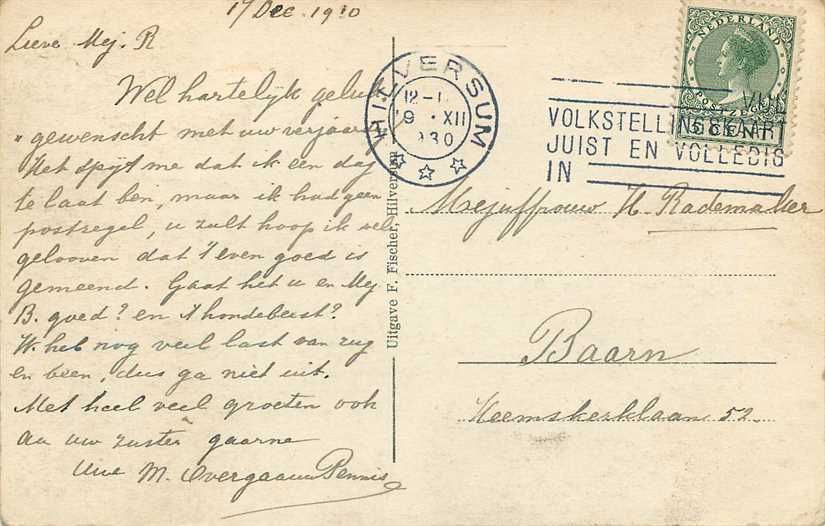 17 Dec. 1930
Lieve Mej. R
Wel hartelijk geluk
gewenscht met uw verjaar
Het spijt me dat ik een dag
te laat ben, maar ik had geen
postzegel, u zult hoop ik wel
gelooven dat 't even goed is
gemeend. Gaat het u en Mej
B. goed? en 't hondebeest?
Ik heb nog veel last van rug
en been, dus ga niet uit.
Met heel veel groeten ook
aan uw zuster gaarne
Uwe M. Overgaauw Pennis
Uitgave F. Fischer, Hilversum
HILVERSUM
12-1
9 XII
1930
VUL
VOLKSTELLINGSKAART
JUIST EN VOLLEDIG
IN
NEDERLAND
POSTZEGEL
5 CENT
Mejuffrouw H. Rademaker
Baarn
Heemskerklaan 52.